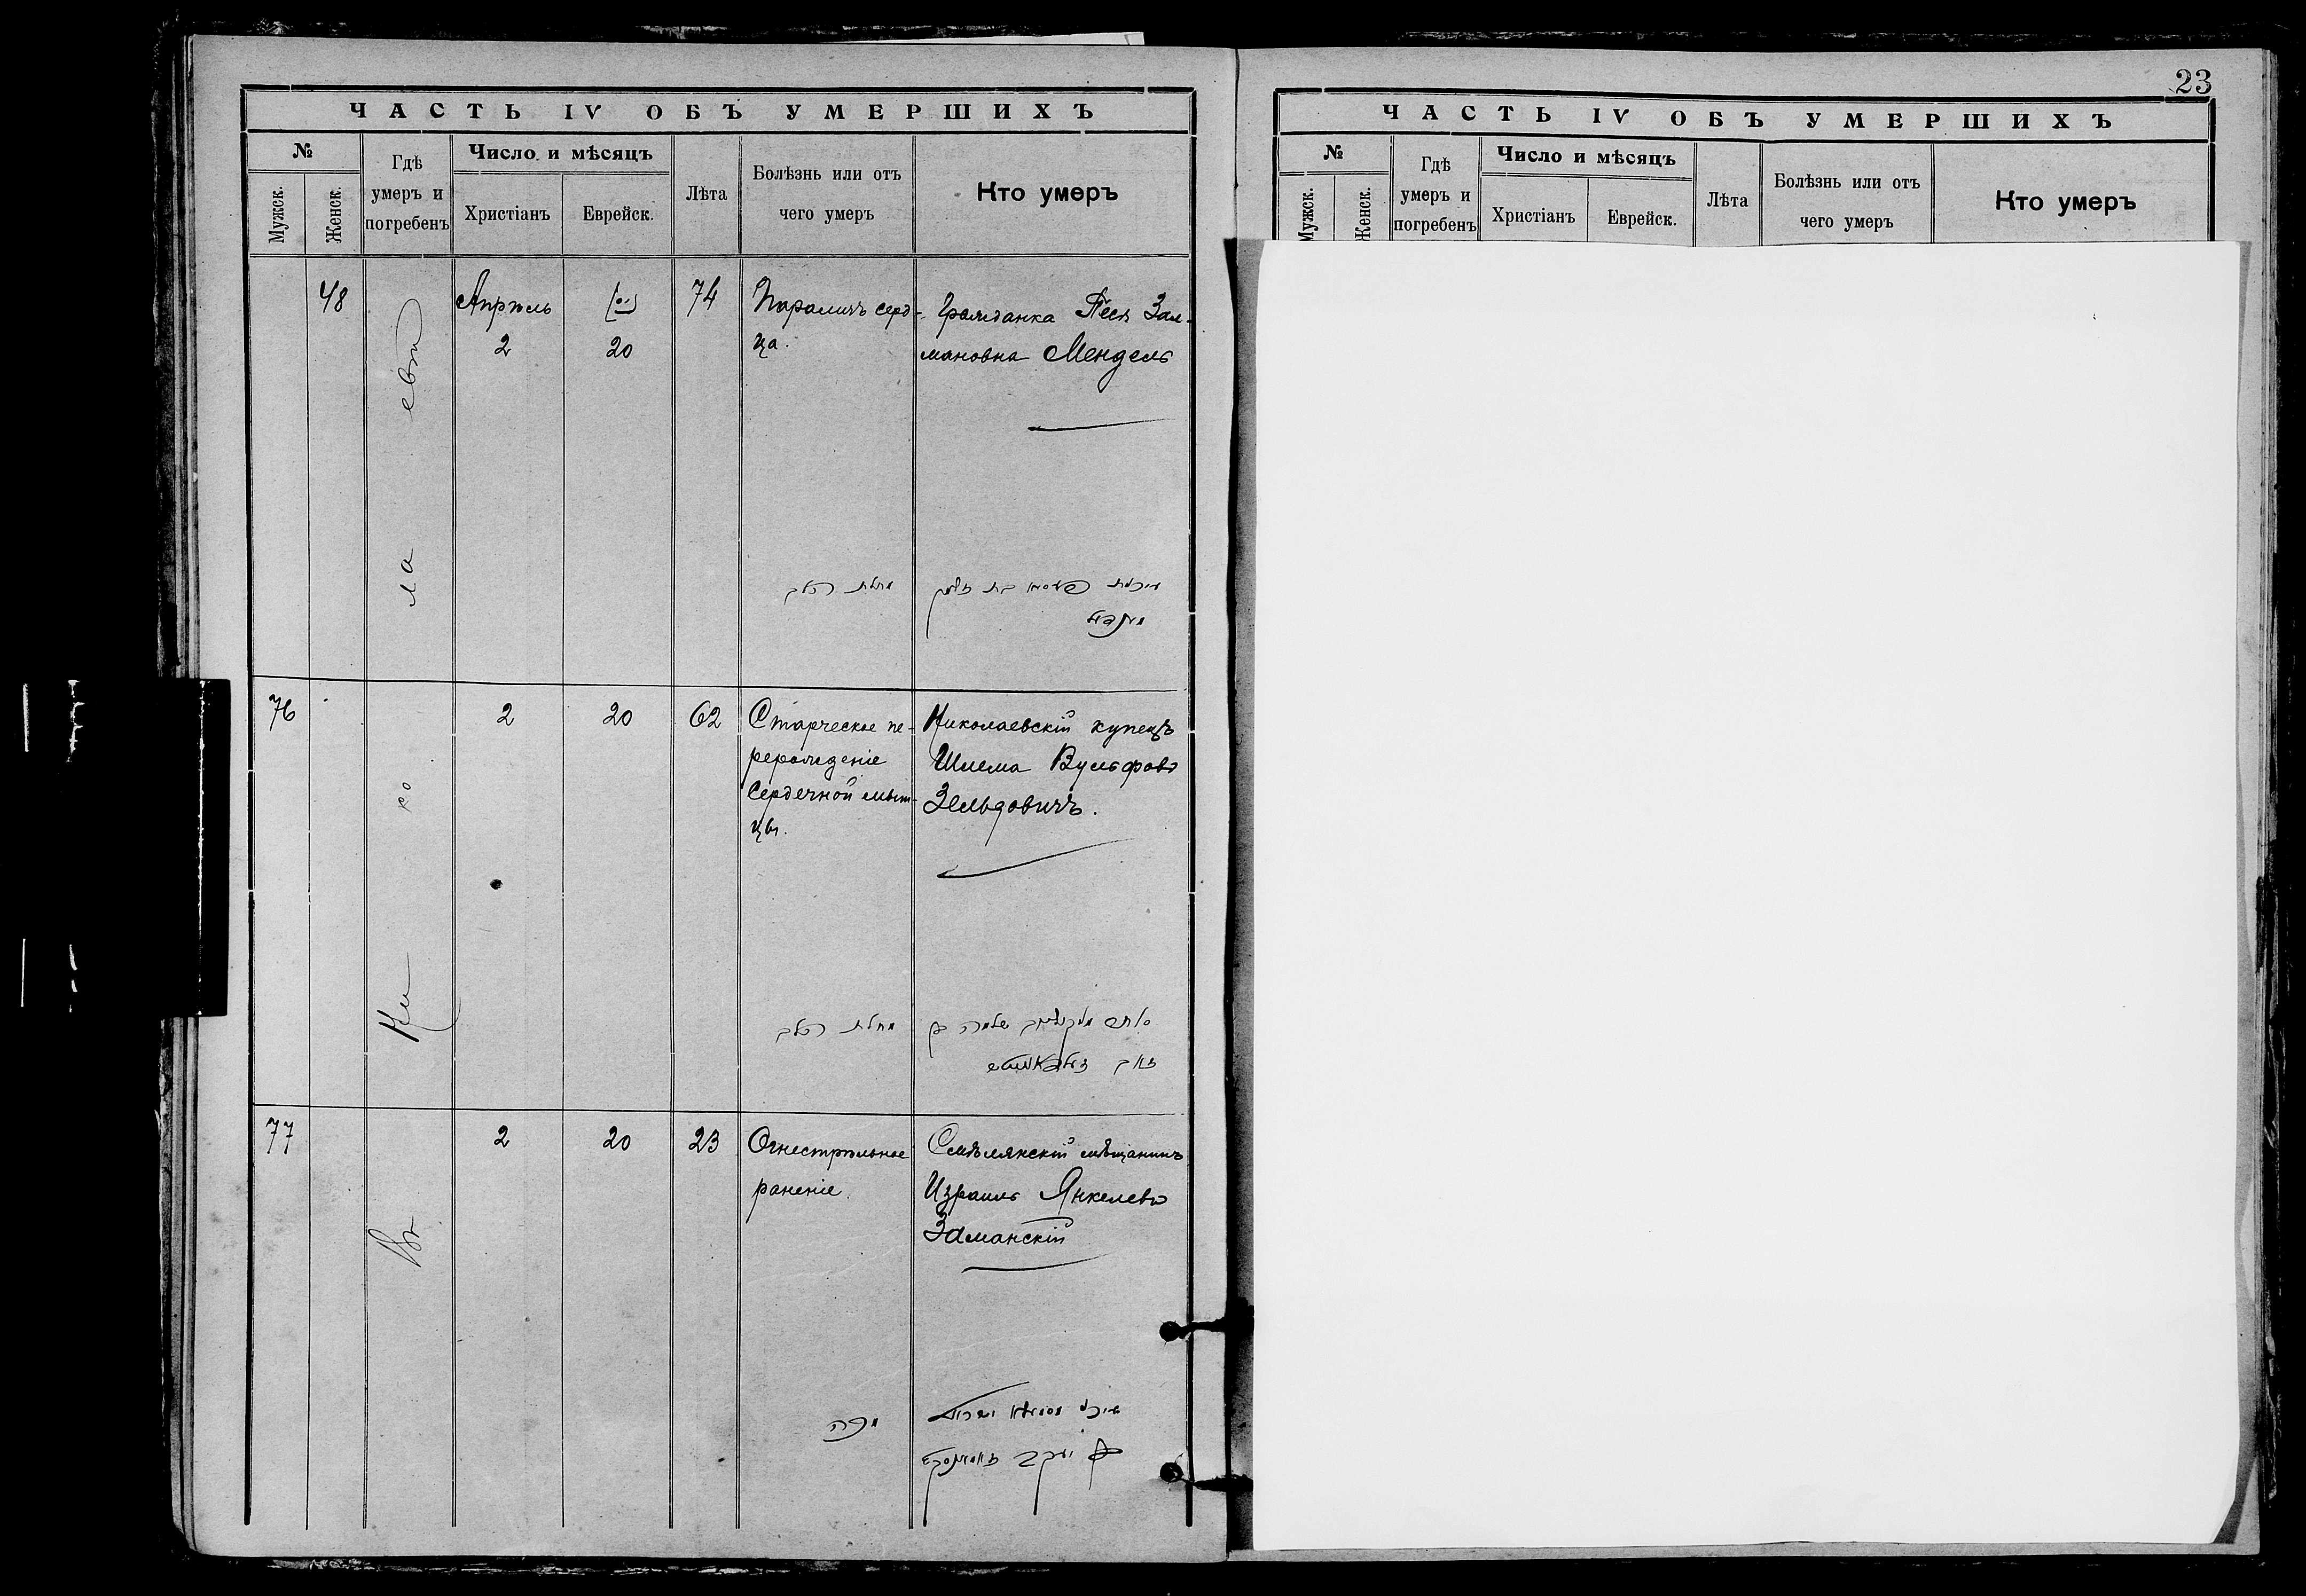 23
ЧАСТЬ IV ОБЪ УМЕРШИХЪ
№
Мужск.
Женск.
Гдѣ
умеръ и
погребенъ
Число и мѣсяцъ
Христіанъ
Еврейск.
Лѣта
Болѣзнь или отъ
чего умеръ
Кто умеръ
48
Апрѣль
2
20
74
Параличъ серд-
ца.
Гражданка Песя Зал-
мановна Мендель
מחלת הלב
76
2
20
62
Старческое пе-
рерожденіе
сердечной мыш-
цы.
Николаевскій купецъ
Шлема Вульфовъ
Зельдовичъ.
מחלת הלב
שלמה בן
77
2
20
23
Огнестрѣльное
раненіе.
Смѣлянскій мѣщанинъ
Израиль Янкелевъ
Заманскій
Въ Николаевѣ
ЧАСТЬ IV ОБЪ УМЕРШИХЪ
№
Мужск.
Женск.
Гдѣ
умеръ и
погребенъ
Число и мѣсяцъ
Христіанъ
Еврейск.
Лѣта
Болѣзнь или отъ
чего умеръ
Кто умеръ